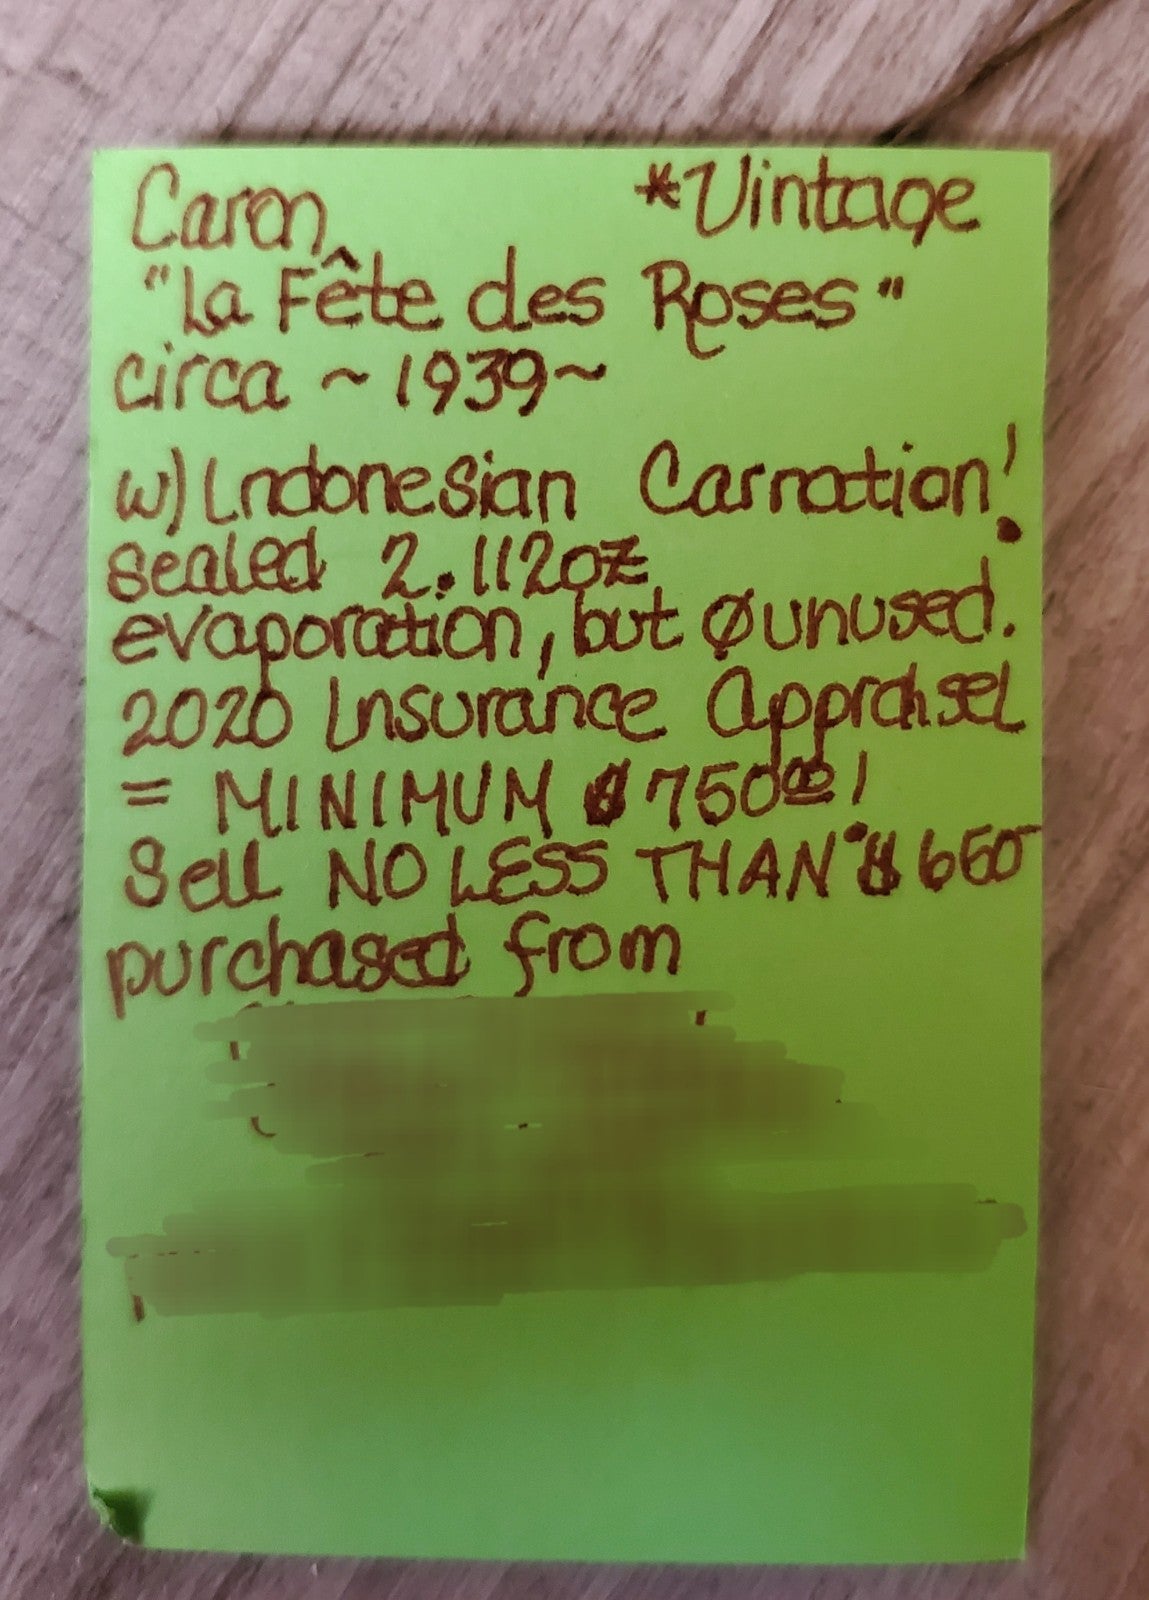 Caron *Vintage
"La Fête des Roses"
circa ~1939~
w) Indonesian Carnation!
sealed 2.112oz
evaporation, but Ø unused.
2020 Insurance Appraisel
= MINIMUM $750.00!
Sell NO LESS THAN $650
purchased from